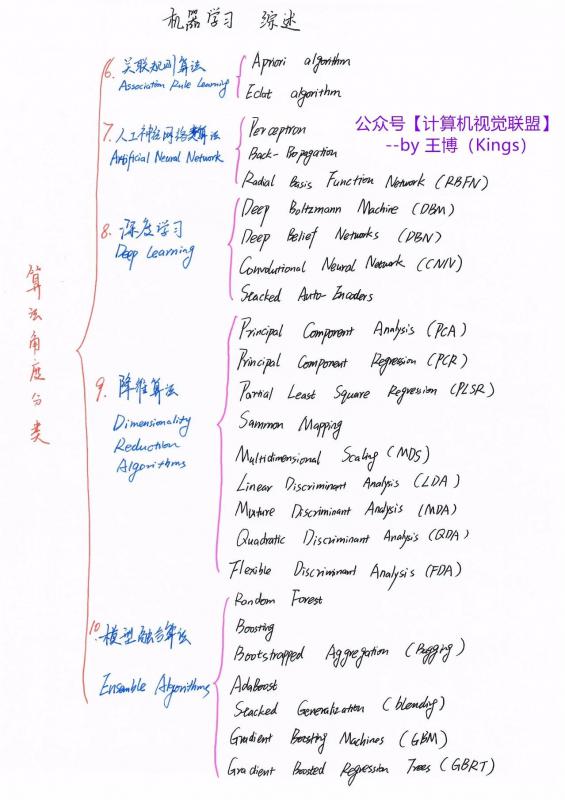 机器学习 综述
公众号【计算机视觉联盟】
--by 王博（Kings）
算法角度分类
6. 关联规则算法
Association Rule Learning
Apriori algorithm
Eclat algorithm
7. 人工神经网络类算法
Artificial Neural Network
Perceptron
Back-Propagation
Radial Basis Function Network (RBFN)
8. 深度学习
Deep Learning
Deep Boltzmann Machine (DBM)
Deep Belief Networks (DBN)
Convolutional Neural Network (CNN)
Stacked Auto-Encoders
9. 降维算法
Dimensionality
Reduction
Algorithms
Principal Component Analysis (PCA)
Principal Component Regression (PCR)
Partial Least Square Regression (PLSR)
Sammon Mapping
Multidimensional Scaling (MDS)
Linear Discriminant Analysis (LDA)
Mixture Discriminant Analysis (MDA)
Quadratic Discriminant Analysis (QDA)
Flexible Discriminant Analysis (FDA)
10. 模型融合算法
Ensemble Algorithms
Random Forest
Boosting
Bootstrapped Aggregation (Bagging)
AdaBoost
Stacked Generalization (blending)
Gradient Boosting Machines (GBM)
Gradient Boosted Regression Trees (GBRT)